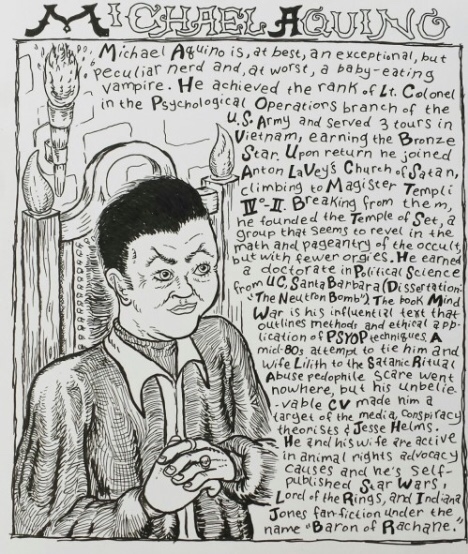 MICHAEL AQUINO
Michael Aquino is, at best, an exceptional, but
peculiar nerd and, at worst, a baby-eating
vampire. He achieved the rank of Lt. Colonel
in the Psychological Operations branch of the
U.S. Army and served 3 tours in
Vietnam, earning the Bronze
Star. Upon return he joined
Anton LaVey's Church of Satan,
climbing to Magister Templi
IV°-II. Breaking from them,
he founded the Temple of Set, a
group that seems to revel in the
math and pageantry of the occult,
but with fewer orgies. He earned
a doctorate in Political Science
from UC, Santa Barbara (Dissertation:
"The Neutron Bomb"). The book Mind
War is his influential text that
outlines methods and ethical app-
lication of PSYOP techniques. A
mid-80s attempt to tie him and
wife Lilith to the Satanic Ritual
Abuse pedophile scare went
nowhere, but his unbelie-
-vable CV made him a
target of the media, conspiracy
theorists & Jesse Helms.
He and his wife are active
in animal rights advocacy
causes and he's self-
published Star Wars,
Lord of the Rings, and Indiana
Jones fan-fiction under the
name "Baron of Rachane."